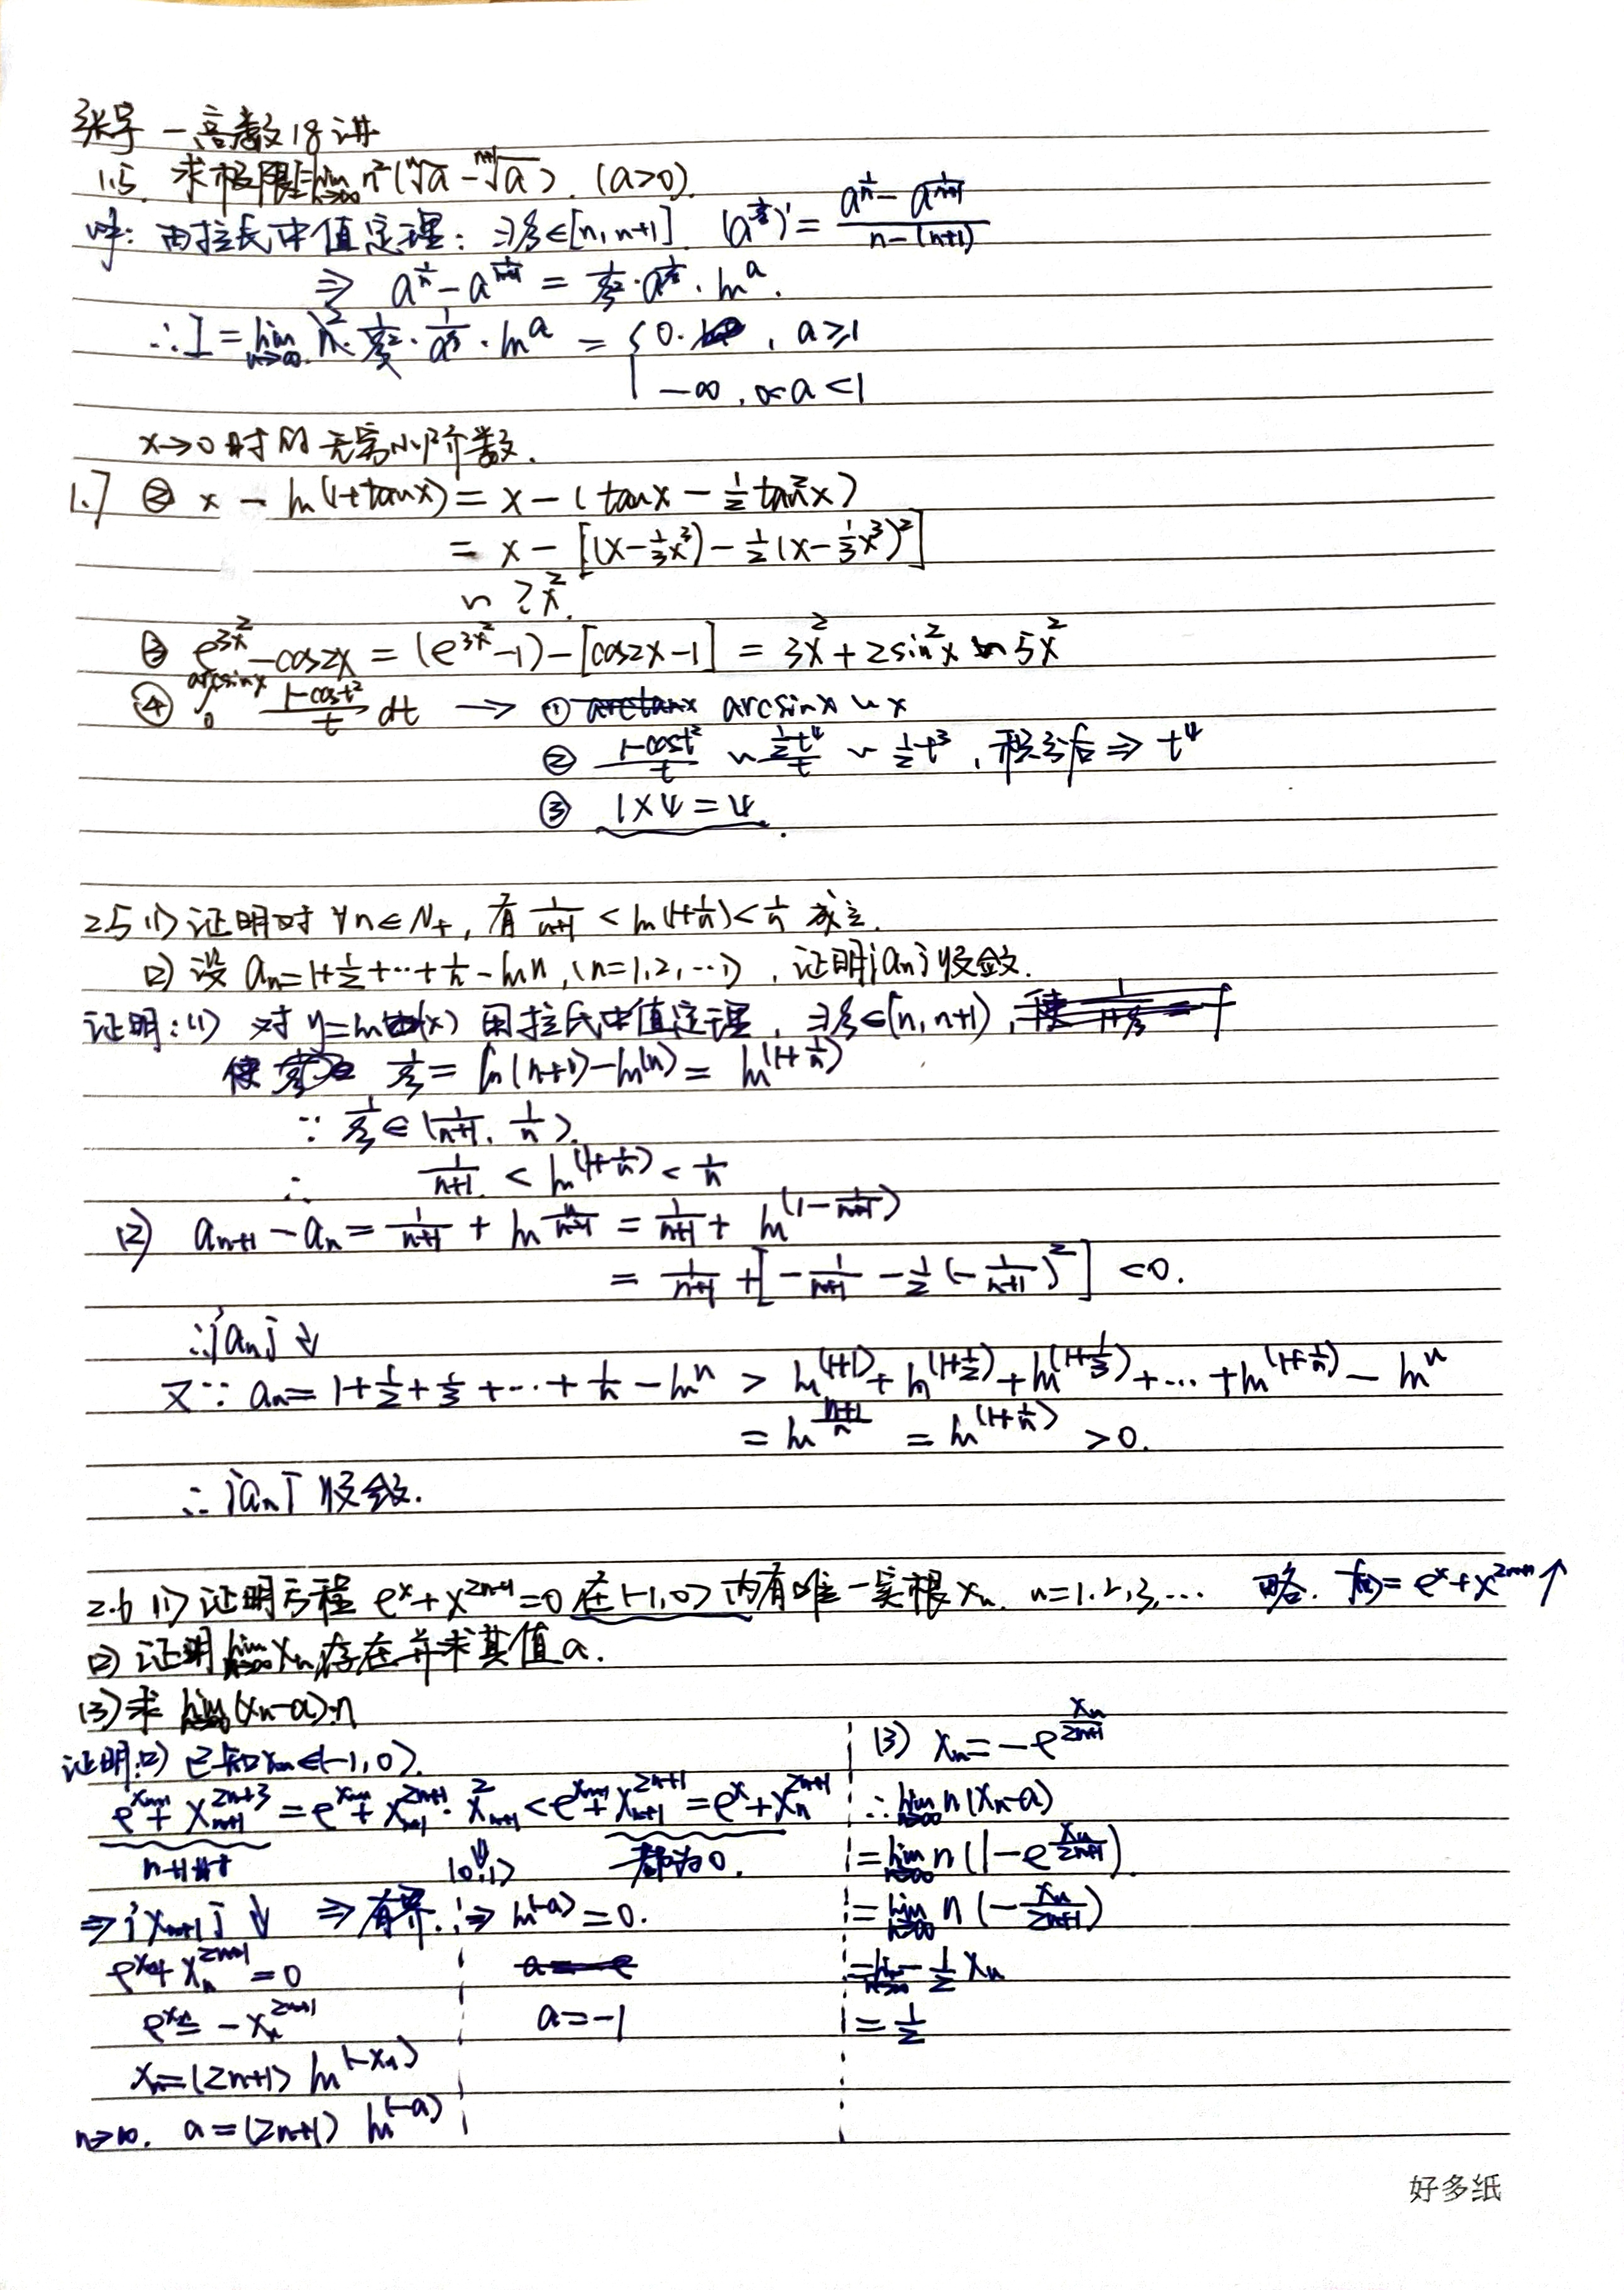 张宇一高数18讲
1.5. 求极限 lim n→∞ n²(ⁿ√a - ⁿ⁺¹√a). (a>0)
解: 由拉氏中值定理: ∃ξ∈[n,n+1]. (a^(1/ξ))' = (a^(1/n) - a^(1/(n+1)))/(n-(n+1))
⇒ a^(1/n) - a^(1/(n+1)) = 1/ξ² · a^(1/ξ) · ln a.
∴ I = lim n→∞ n² · 1/ξ² · 1/a^ξ · ln a = { 0. , a≥1
-∞, 0<a<1
x→0时的无穷小阶数.
1.7 ② x - ln(1+tanx) = x - (tanx - 1/2 tan²x)
= x - [(x - 1/3 x³) - 1/2 (x - 1/3 x³)²]
~ ?x².
③ e^(3x²) - cos2x = (e^(3x²) - 1) - [cos2x - 1] = 3x² + 2sin²x ~ 5x²
④ ∫₀^(arcsinx) (1-cost²)/t dt → ① arctanx arcsinx ~ x
② (1-cost²)/t ~ (1/2 t⁴)/t ~ 1/2 t³, 积分后 ⇒ t⁴
③ 1×4=4.
2.5 (1) 证明对 ∀n∈N₊, 有 1/(n+1) < ln(1+1/n) < 1/n 成立.
(2) 设 aₙ = 1+1/2+…+1/n - ln n, (n=1,2,…), 证明{aₙ}收敛.
证明: (1) 对 y=ln(x) 用拉氏中值定理, ∃ξ∈(n, n+1),
使 1/ξ = ln(n+1) - ln(n) = ln(1+1/n)
∵ 1/ξ ∈ (1/(n+1), 1/n).
∴ 1/(n+1) < ln(1+1/n) < 1/n
(2) aₙ₊₁ - aₙ = 1/(n+1) + ln n/(n+1) = 1/(n+1) + ln(1 - 1/(n+1))
= 1/(n+1) + [-1/(n+1) - 1/2 (-1/(n+1))²] <0.
∴{aₙ}↓
又∵ aₙ = 1+1/2+1/3+…+1/n - ln n > ln(1+1) + ln(1+1/2) + ln(1+1/3) + … + ln(1+1/n) - ln n
= ln (n+1)/n = ln(1+1/n) >0.
∴{aₙ}收敛.
2.6 (1) 证明方程 eˣ + x²ⁿ⁺¹ = 0 在(-1,0)内有唯一实根xₙ. n=1,2,3,… 略. f(x) = eˣ + x²ⁿ⁺¹↑
(2) 证明 lim n→∞ xₙ 存在并求其值a.
(3) 求 lim n→∞ (xₙ-a)·n
证明: (2) 已知xₙ∈(-1,0).
e^(xₙ₊₁) + xₙ₊₁^(2n+3) = e^(xₙ₊₁) + xₙ₊₁^(2n+1) · xₙ₊₁² < e^(xₙ₊₁) + xₙ₊₁^(2n+1) = eˣ + xₙ^(2n+1)
n+1时 (0,1) 都为0.
⇒{xₙ₊₁}↓ ⇒有界.
e^(xₙ) + xₙ^(2n+1) = 0
e^(xₙ) = -xₙ^(2n+1)
xₙ = (2n+1) ln(-xₙ)
n→∞. a = (2n+1) ln(-a)
⇒ ln(-a) = 0.
a=-e
a=-1
(3) xₙ = -e^(xₙ/(2n+1))
∴ lim n→∞ n(xₙ-a)
= lim n→∞ n(1 - e^(xₙ/(2n+1))).
= lim n→∞ n(-xₙ/(2n+1))
= lim n→∞ -1/2 xₙ
= 1/2
好多纸